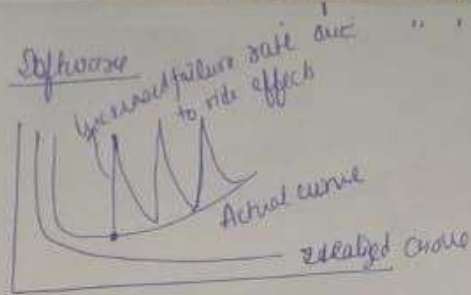 Software
Increased failure rate due
to side effects
Actual curve
Idealized curve